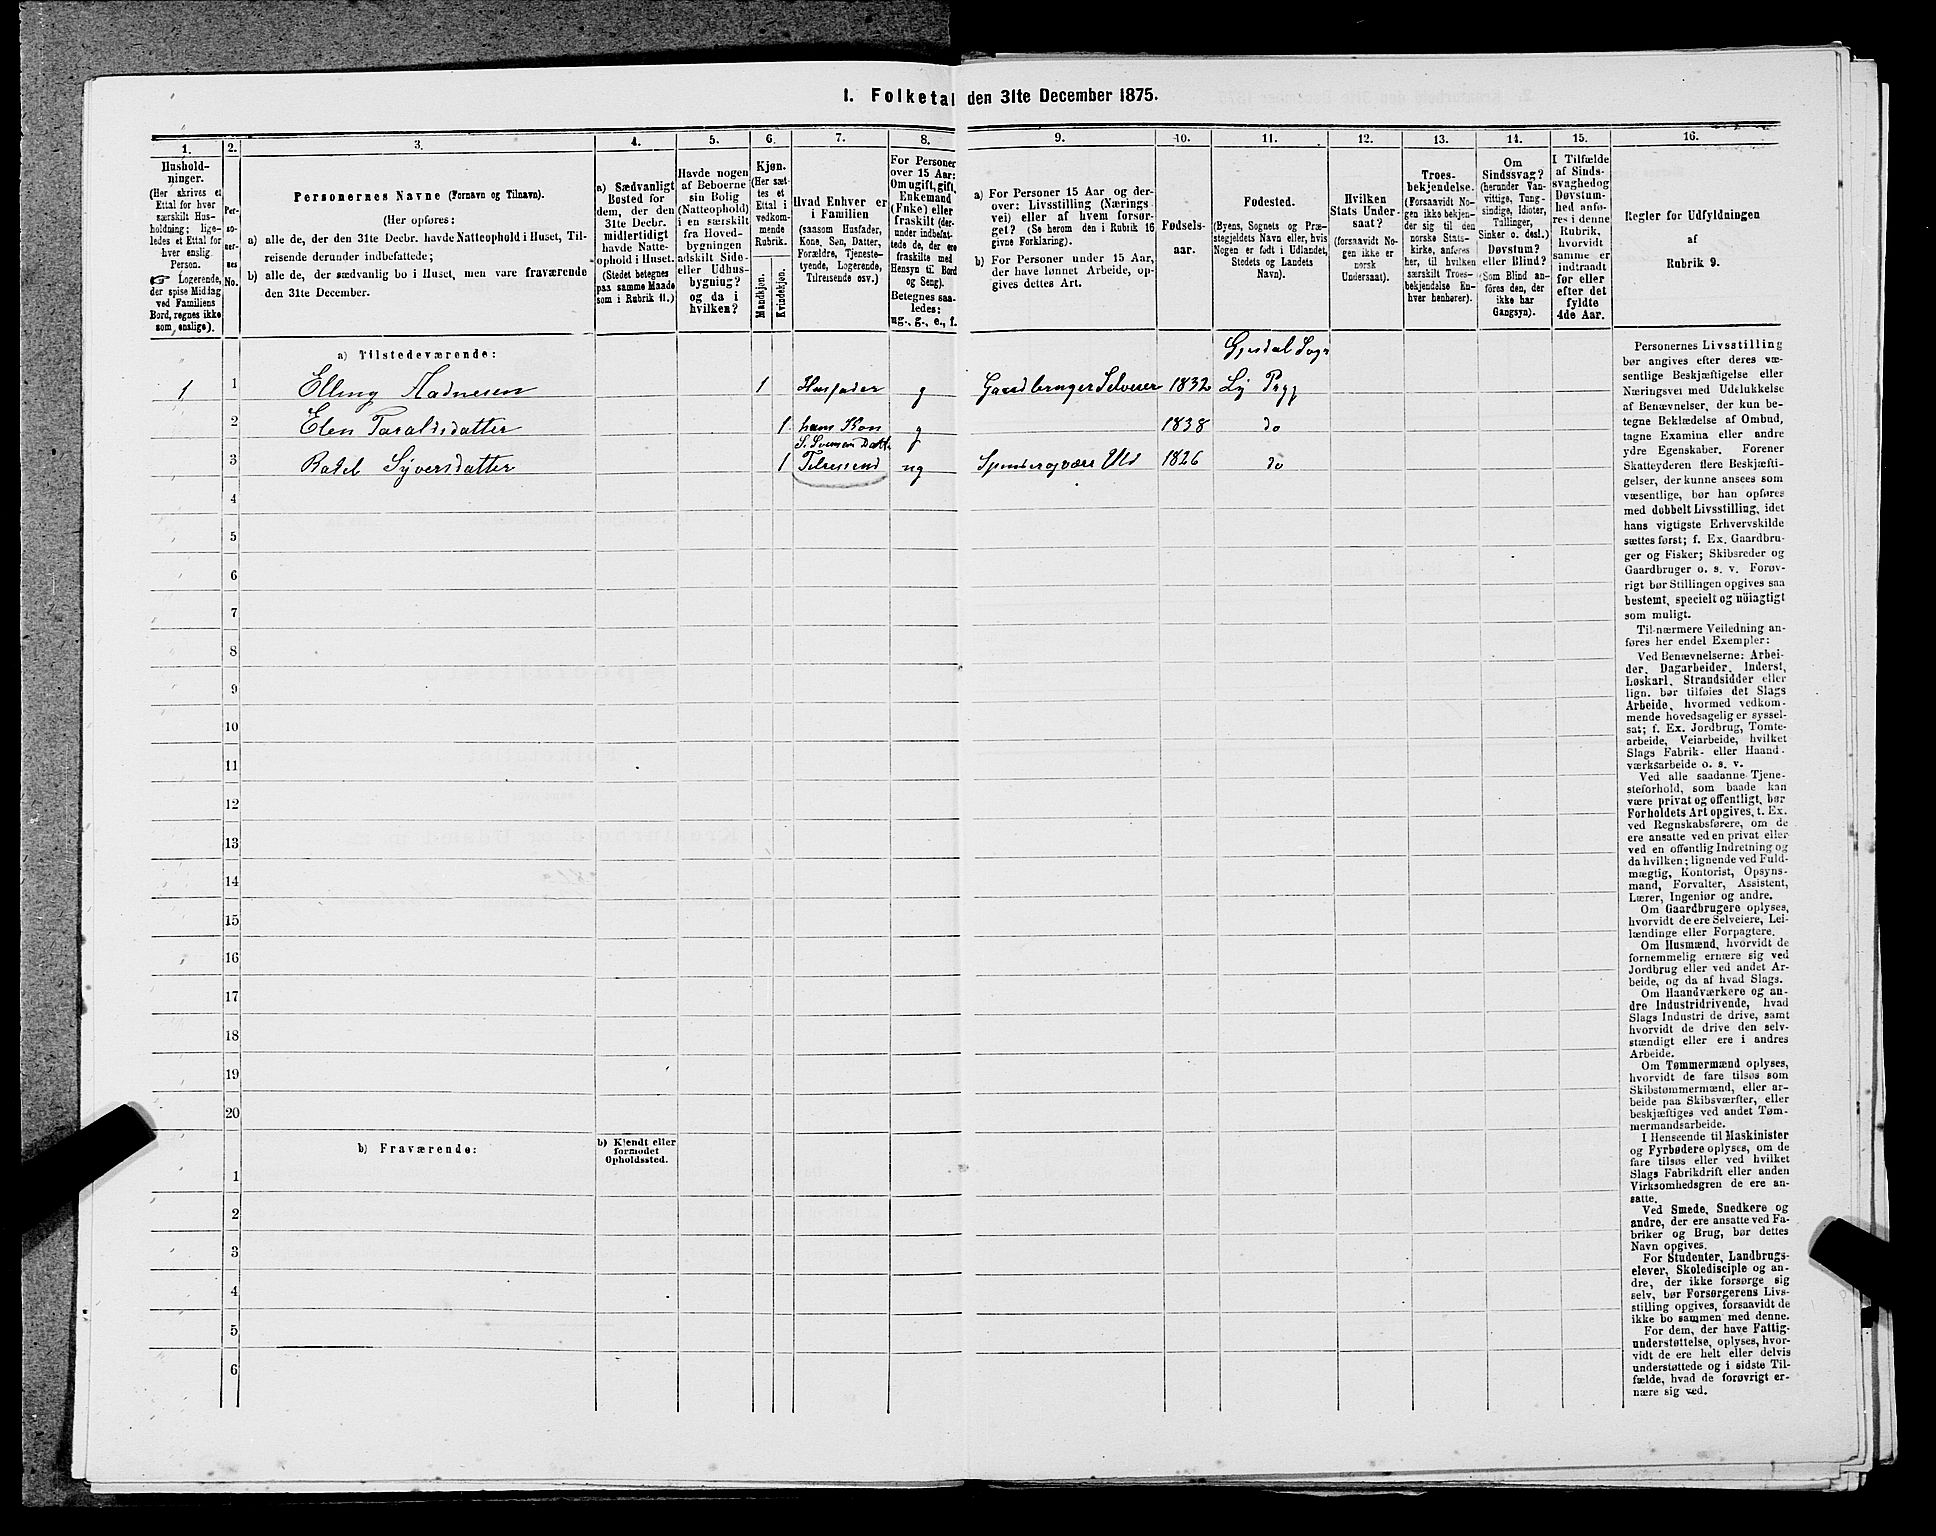 1. Folketal den 31te December 1875.
1.
2.
3.
4.
5.
6.
7.
8.
9.
10.
11.
12.
13.
14.
15.
16.
Hushold-
ninger.
(Her skrives et
Ettal for hver
særskilt Hus-
holdning; lige-
ledes et Ettal for
hver enslig.
Person.
Logerende,
der spise Middag
ved Familiens
Bord, regnes ikke
som enslige).
Per-
so-
ner-
nes
No.
Personernes Navne (Fornavn og Tilnavn).
(Her opføres:
a) alle de, der den 31te Decbr. havde Natteophold i Huset, Til-
reisende derunder indbefattede;
b) alle de, der sædvanlig bo i Huset, men vare fraværende
den 31te December.
a) Sædvanligt
Bosted for
dem, der den
31te Decbr.
midlertidigt
havde Natte-
ophold i Huset.
(Stedet betegnes
paa samme Maade
som i Rubrik 11.)
Havde nogen
af Beboerne
sin Bolig
(Natteophold)
i en særskilt
fra Hoved-
bygningen
adskilt Side-
eller Udhus-
bygning?
og da i
hvilken?
Kjøn.
(Her sæt-
tes et
Ettal i
vedkom-
mende
Rubrik.
Mandkjøn.
Kvindekjøn.
Hvad Enhver er
i Familien
(saasom Husfader,
Kone, Søn, Datter,
Forældre, Tjeneste-
tyende, Logerende,
Tilreisende osv.)
For Personer
over 15 Aar:
Om ugift, gift,
Enkemand
(Enke) eller
fraskilt (der-
under indbefat-
tede de, der ere
fraskilte med
Hensyn til Bord
og Seng).
Betegnes saa-
ledes:
ug., g., e., f.
a) For Personer 15 Aar og der-
over: Livsstilling (Nærings
vei) eller af hvem forsør-
get? (Se herom den i Rubrik 16
givne Forklaring).
b) For Personer under 15 Aar,
der have lønnet Arbeide, op-
gives dettes Art.
Fødsels-
aar.
Fødested.
(Byens, Sognets og Præ-
stegjeldets Navn eller, hvis
Nogen er født i Udlandet,
Stedets og Landets
Navn).
Hvilken
Stats Under-
saat?
(forsaavidt No-
gen ikke er
norsk
Undersaat).
Troes-
bekjendelse.
(Forsaavidt No-
gen ikke bekjen-
der sig til den
norske Stats-
kirke, anføres
her, til hvilken
særskilt Troes-
bekjendelse En-
hver henhører).
Om
Sindssvag?
(herunder Van-
vittige, Tung-
sindige, Idioter,
Tullinger,
Sinker o. desl.)
Døvstum?
eller Blind?
(Som Blind an-
føres den, der
ikke har
Gangsyn).
I Tilfælde
af Sinds-
svaghed og
Døvstum-
hed anfø-
res i denne
Rubrik,
hvorvidt
samme er
indtraadt
før eller
efter det
fyldte
4de Aar.
Regler for Udfyldningen
af
Rubrik 9.
a) Tilstedeværende:
Gjesdal Sogn
1 1 Elling Hadnesen 1 Husfader g Gaardbruger Selveier 1832 Ly Prgj
2 Elen Taraldsdatter 1 hans Kon g 1838 do
S. Svensen Datt.
3 Rakel Syversdatter 1 Tilreisend ug Spinder og væv Uld 1826 do
4
5
6
7
8
9
10
11
12
13
14
15
16
17
18
19
20
b) Fraværende:
b) Kjendt eller
formodet
Opholdssted.
1
2
3
4
5
6
Personernes Livsstilling
bør angives efter deres væ-
sentlige Beskjæftigelse eller
Næringsvei med Udelukkelse
af Benævnelser, der kun be-
tegne Beklædelse af Ombud,
tagne Examina eller andre
ydre Egenskaber. Forener
Skatteyderen flere Beskjæfti-
gelser, der kunne ansees som
væsentlige, bør han opføres
med dobbelt Livsstilling, idet
hans vigtigste Erhvervskilde
sættes først; f. Ex. Gaardbru-
ger og Fisker; Skibsreder og
Gaardbruger o. s. v. Forøv-
rigt bør Stillingen opgives saa
bestemt, specielt og nöiagtigt
som muligt.
Til nærmere Veiledning an-
føres her endel Exempler:
Ved Benævnelserne: Arbei-
der, Dagarbeider, Inderst,
Løskarl, Strandsidder eller
lign. bør tilføies det Slags
Arbeide, hvormed vedkom-
mende hovedsagelig er syssel-
sat; f. Ex. Jordbrug, Tomte-
arbeide, Veiarbeide, hvilket
Slags Fabrik- eller Haand-
værksarbeide o. s. v.
Ved alle saadanne Tjene-
steforhold, som baade kan
være privat og offentligt, bør
Forholdets Art opgives, t. Ex.
ved Regnskabsførere, om de
ere ansatte ved en privat eller
ved en offentlig Indretning og
da hvilken; lignende ved Fuld-
mægtig, Kontorist, Opsyns-
mand, Forvalter, Assistent,
Lærer, Ingeniør og andre.
Om Gaardbrugere oplyses,
hvorvidt de ere Selveiere, Lei-
lændinge eller Forpagtere.
Om Husmænd, hvorvidt de
fornemmelig ernære sig ved
Jordbrug eller ved andet Ar-
beide, og da af hvad Slags.
Om Haandværkere og an-
dre Industridrivende, hvad
Slags Industri de drive, samt
hvorvidt de drive den selv-
stændigt eller ere i andres
Arbeide.
Om Tømmermænd oplyses,
hvorvidt de fare tilsøs som
Skibstømmermænd, eller ar-
beide paa Skibsværfter, eller
beskjæftiges ved andet Tøm-
mermandsarbeide.
I Henseende til Maskinister
og Fyrbødere oplyses, om de
fare tilsøs eller ved hvilket
Slags Fabrikdrift eller anden
Virksomhedsgren de ere an-
satte.
Ved Smede, Snedkere og
andre, der ere ansatte ved Fa-
briker og Brug, bør dettes
Navn opgives.
For Studenter, Landbrugs-
elever, Skoledisciple og an-
dre, der ikke forsørge sig
selv, bør Forsørgerens Livs-
stilling opgives, forsaavidt de
ikke bo sammen med denne.
For dem, der have Fattig-
understøttelse, oplyses, hvor-
vidt de ere helt eller delvis
understøttede og i sidste Til-
fælde, hvad de forøvrigt er-
nære sig ved.